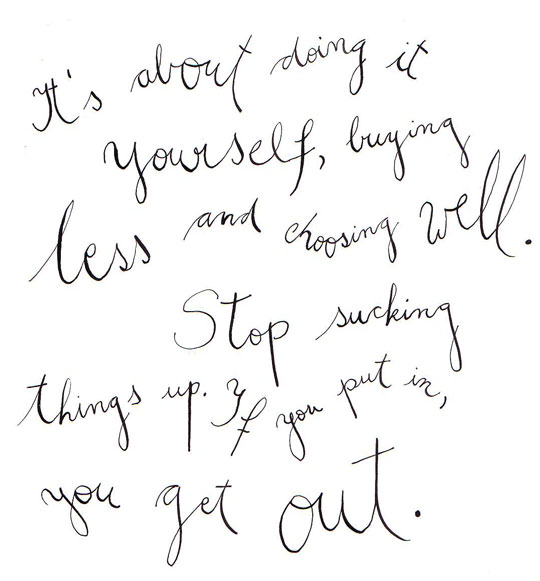 It's about doing it
yourself, buying
less and choosing well.
Stop sucking
things up. If you put in,
you get out.